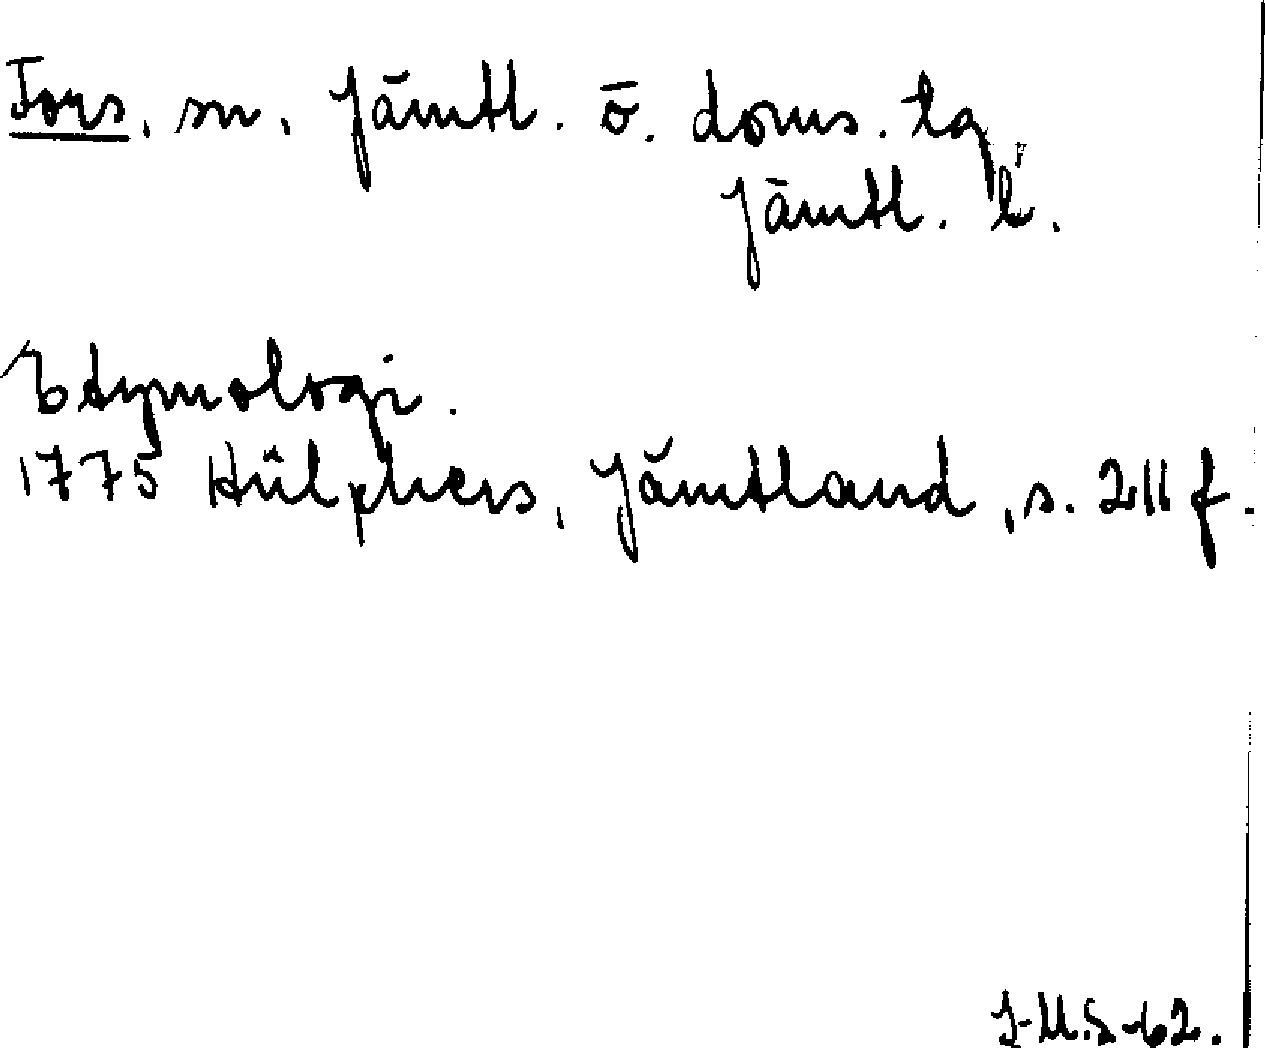 Fors, sn, Jämtl. ö. doms. tg
Jämtl. l.
Etymologi.
1775 Hülphers, Jämtland, s. 211 f.
J-M.S-62.